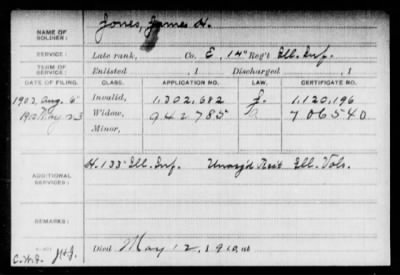 NAME OF SOLDIER: Jones, James H.
SERVICE: Late rank, Co. E, 14" Reg't Ill. Inf.
TERM OF SERVICE: Enlisted , 1 Discharged , 1
DATE OF FILING. CLASS. APPLICATION NO. LAW. CERTIFICATE NO.
1903, Aug. 6 Invalid, 1,302,682 1,120,196
May 23 Widow, 942,785 706540
Minor,
ADDITIONAL SERVICES: H. 133" Ill. Inf. Unas'd Ill. Vols.
REMARKS:
Died May 12, 1910, at